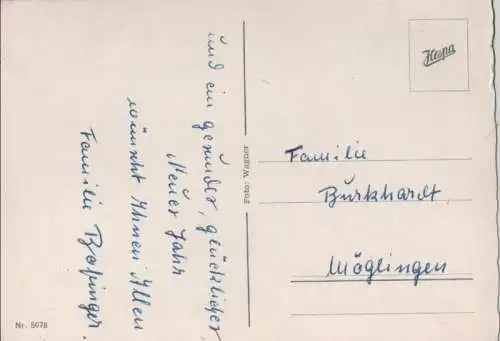 und ein gesundes, glückliches
Neues Jahr
wünscht Ihnen Allen
Familie
Foto: W. Wagner
Hespa
Familie
Burkhardt,
Möglingen
Nr. 5078